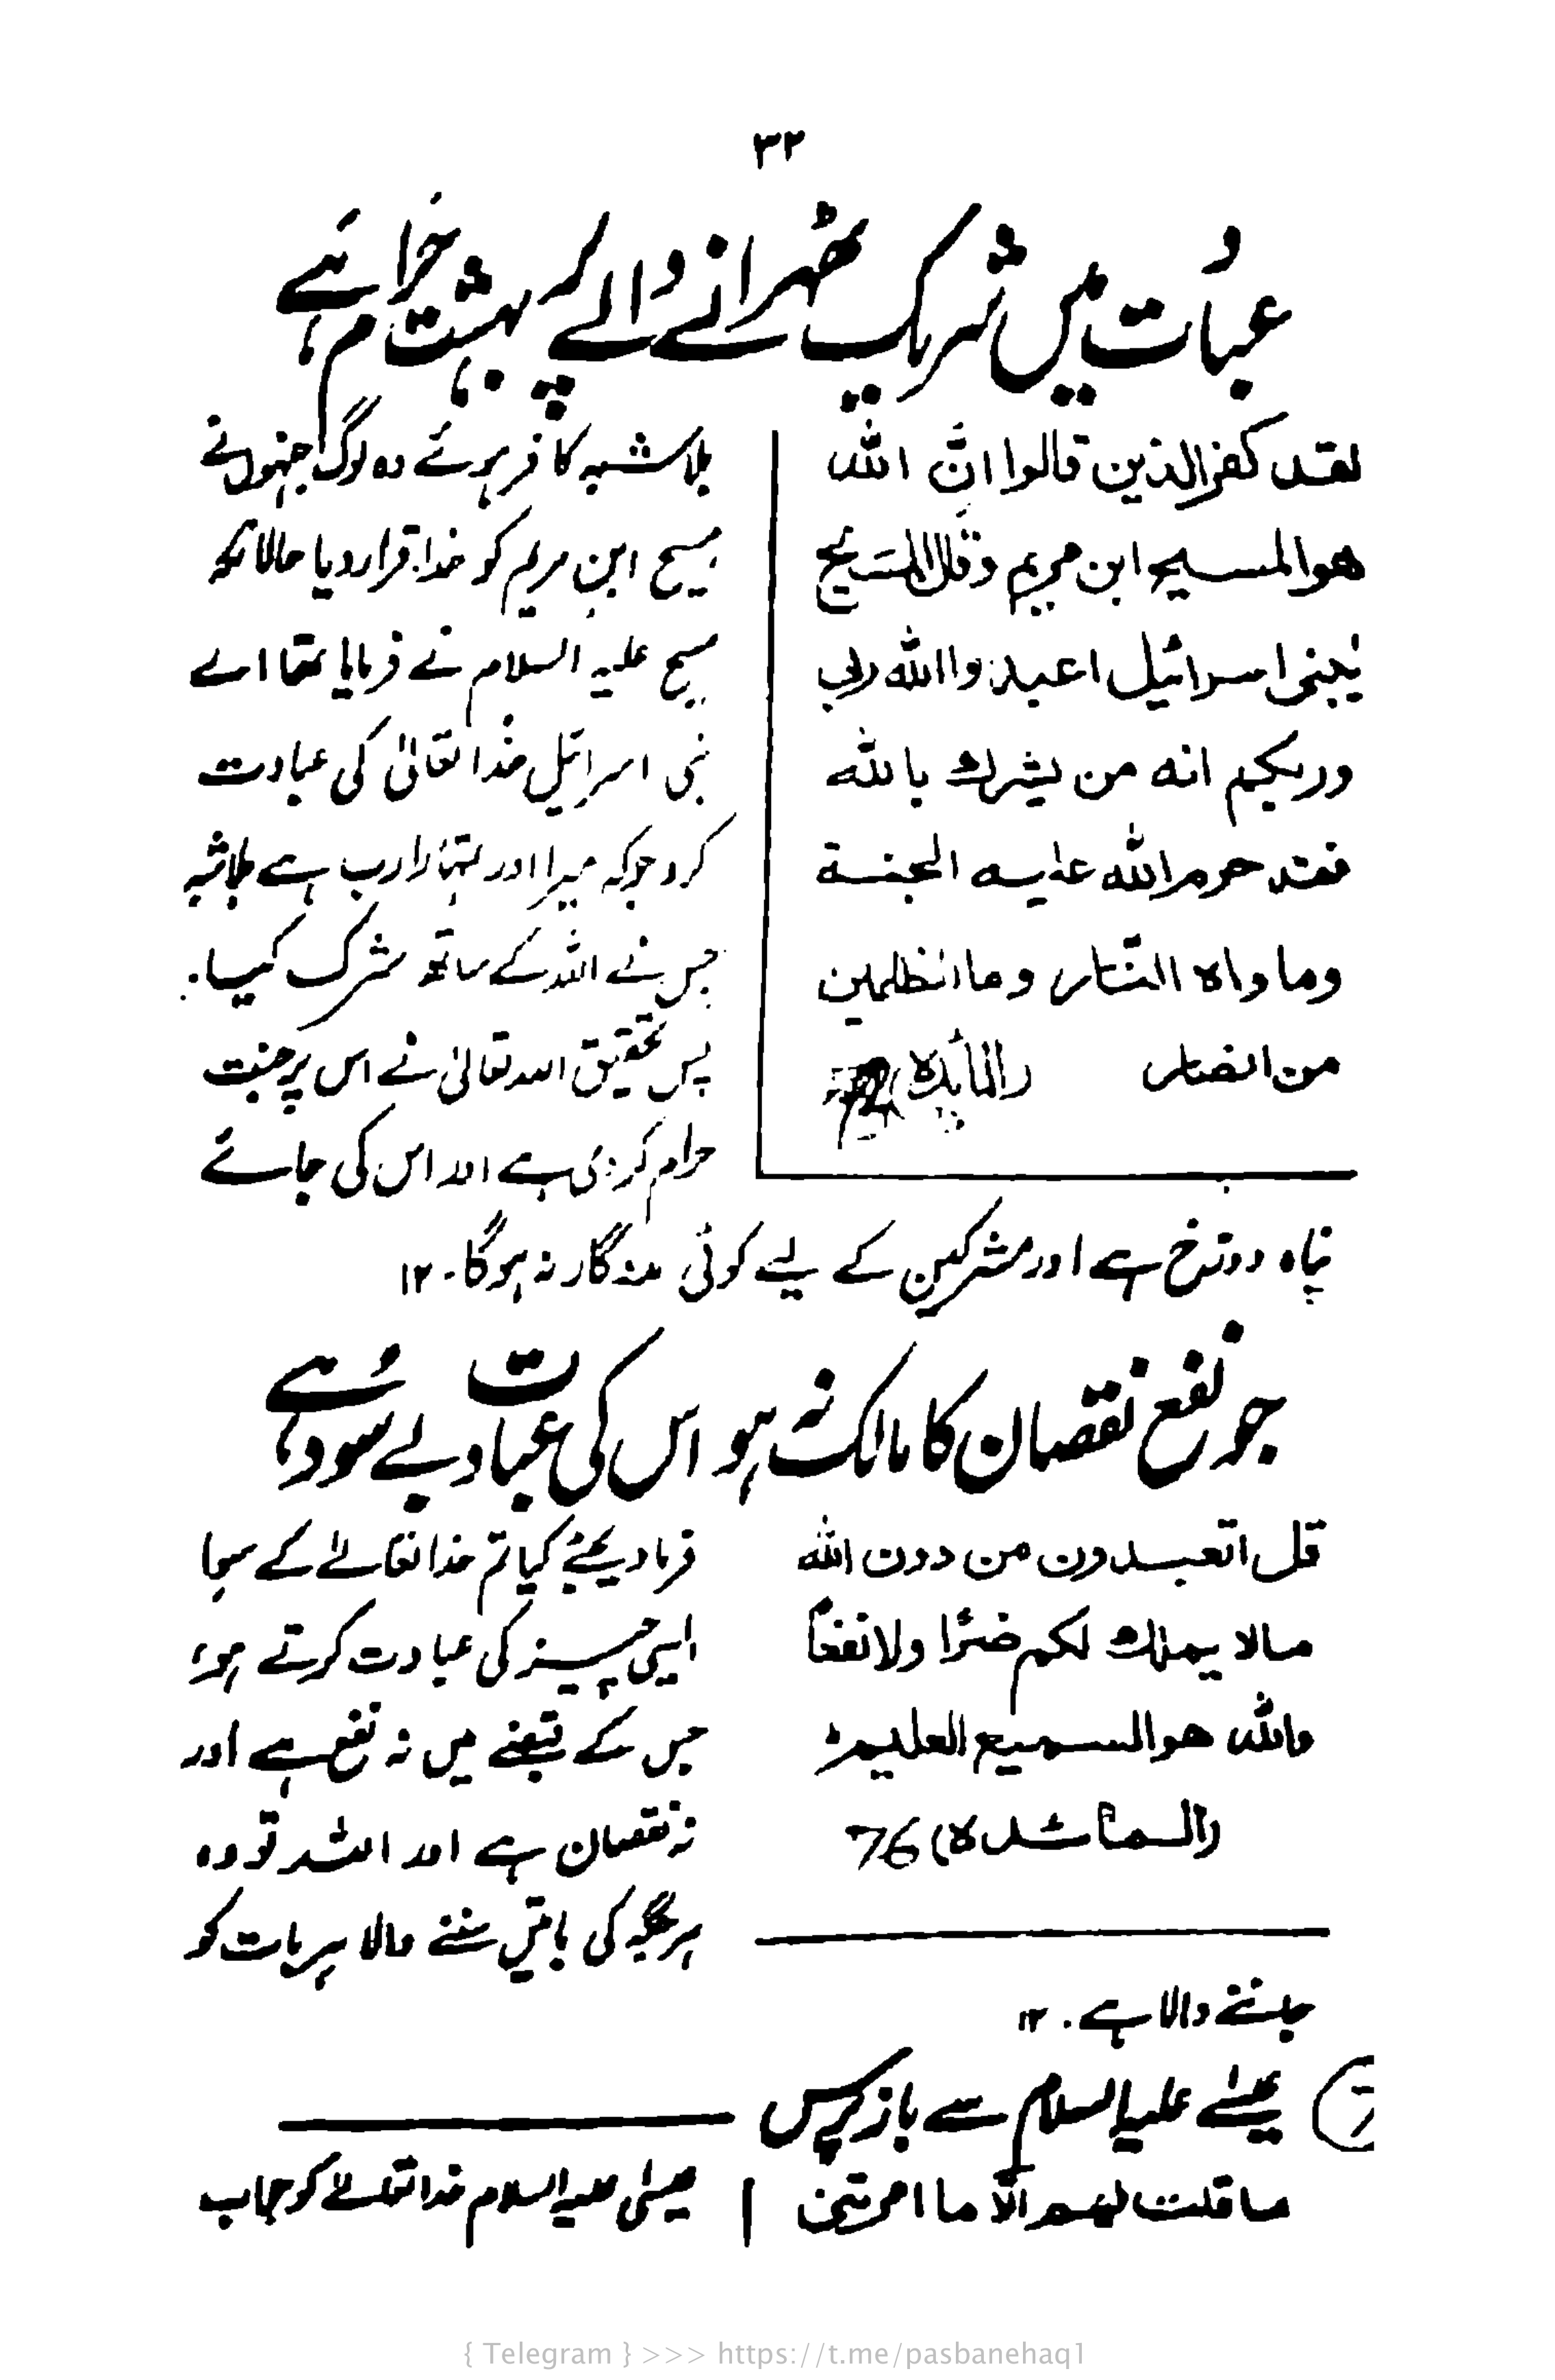 ۳۲
عبادت میں شریک ٹھہرانے والے پر بہشت حرام ہے
لقد كفر الذين قالوا انَّ الله
هو المسيح ابن مريم وقال المسيح
يٰبنى اسرائيل اعبدوا الله ربى
وربكم انه من يشرك بالله
فقد حرم الله عليه الجنة
وماواه النار وما للظلمين
من انصار (المائدة)
بلا شبہ کافر ہوئے وہ لوگ جنہوں نے
مسیح ابن مریم کو خدا قرار دیا حالانکہ
مسیح علیہ السلام نے فرمایا تھا اے
بنی اسرائیل خدا تعالیٰ کی عبادت
کرو جو کہ میرا اور تمہارا رب ہے بلاشبہ
جس نے اللہ کے ساتھ شرک کیا۔
پس تحقیق اللہ تعالیٰ نے اس پر جنت
حرام کر دی ہے اور اس کی جائے
پناہ دوزخ ہے اور مشرکین کے لیے کوئی مددگار نہ ہوگا۔ ۱۲
جو نفع نقصان کا مالک نہ ہو اس کی عبادت بے سود ہے
قل اتعبدون من دون الله
مالا يملك لكم ضرًا ولا نفعاً
والله هو السميع العليم
(المائدة) 76
فرما دیجئے کیا تم خدا تعالےٰ کے سوا
ایسی چیز کی عبادت کرتے ہو،
جس کے قبضے میں نہ نفع ہے اور
نہ نقصان ہے اور اللہ تو وہ
ہر جگہ کی باتیں سننے والا ہر بات کو
جاننے والا ہے۔ ۱۲
عیسٰے علیہ السلام سے باز پرس
ما قلت لهم الّا ما امرتنى
عیسٰی علیہ السلام خدا تعالےٰ کو جواب
{ Telegram } >>> https://t.me/pasbanehaq1